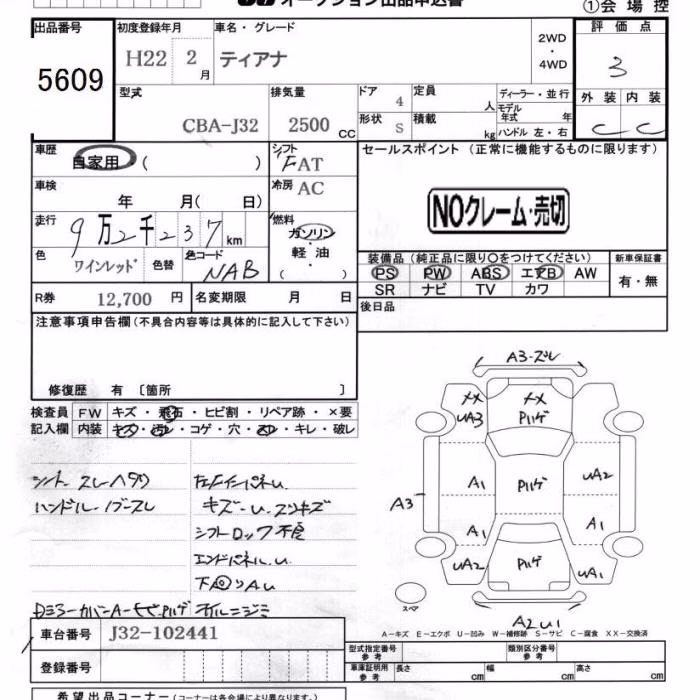 オークション出品申込書
①会場控
出品番号 初度登録年月 車名・グレード 評価点
5609 H22 2月 ティアナ 2WD・4WD 3
型式 排気量 ドア 定員 ディーラー・並行 外装 内装
CBA-J32 2500cc 4 人 モデル年式 年 C C
形状 S 積載 kg ハンドル 左・右
車歴 自家用 ( ) シフト FAT セールスポイント (正常に機能するものに限ります)
車検 年 月( 日) 冷房 AC
NOクレーム・売切
走行 9万2千237km 燃料 ガソリン 軽油 ( )
色 ワインレッド 色替 色コード NAB
装備品 (純正品に限り○をつけてください) 新車保証書
PS PW ABS エアB AW 有・無
SR ナビ TV カワ
R券 12,700円 名変期限 月 日 後日品
注意事項申告欄 (不具合内容等は具体的に記入して下さい)
修復歴 有 〔箇所 〕
検査員 FW キズ・飛石・ヒビ割・リペア跡・×要
記入欄 内装 キズ・汚レ・コゲ・穴・スレ・キレ・破レ
シート スレ ヘタリ
ハンドル・ノブスレ
キズ・U・スリキズ
シフトロック不良
エンドパネルU
A3-ズレ
XX XX
UA3 Pハゲ
A1 Pハゲ UA2
A3
A1 A1
UA2 Pハゲ UA1
スペア
A2U1
A-キズ E-エクボ U-凹み W-補修跡 S-サビ C-腐食 XX-交換済
車台番号 J32-102441
型式指定番号 参考 類別区分番号 参考
登録番号 車庫証明用 参考 長さ cm 幅 cm 高さ cm
希望出品コーナー (コーナーは各会場により異なります)